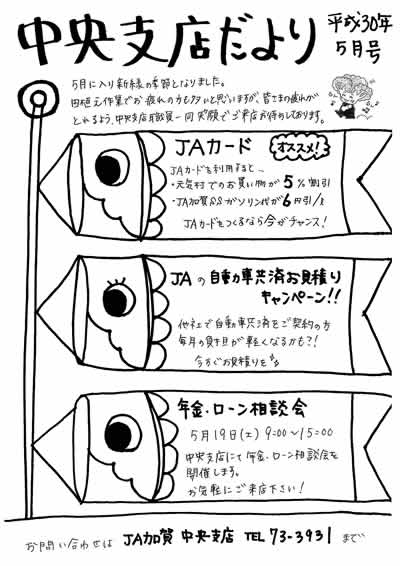 中央支店だより
平成30年
5月号
5月に入り新緑の季節となりました。
田植え作業でお疲れの方も多いと思いますが、皆さまの疲れが
とれるよう、中央支店職員一同笑顔でご来店お待ちしております。
JAカード
オススメ!
JAカードを利用すると…
・元気村でのお買い物が5%割引
・JA加賀SSがソリン代が6円引/ℓ
JAカードをつくるなら今がチャンス!
JAの自動車共済お見積り
キャンペーン!!
他社で自動車共済をご契約の方
毎月の負担が軽くなるかも?!
今すぐお見積りを
年金・ローン相談会
5月19日(土) 9:00〜15:00
中央支店にて年金・ローン相談会を
開催します。
お気軽にご来店下さい!
お問い合わせは JA加賀 中央支店 TEL 73-3931 まで